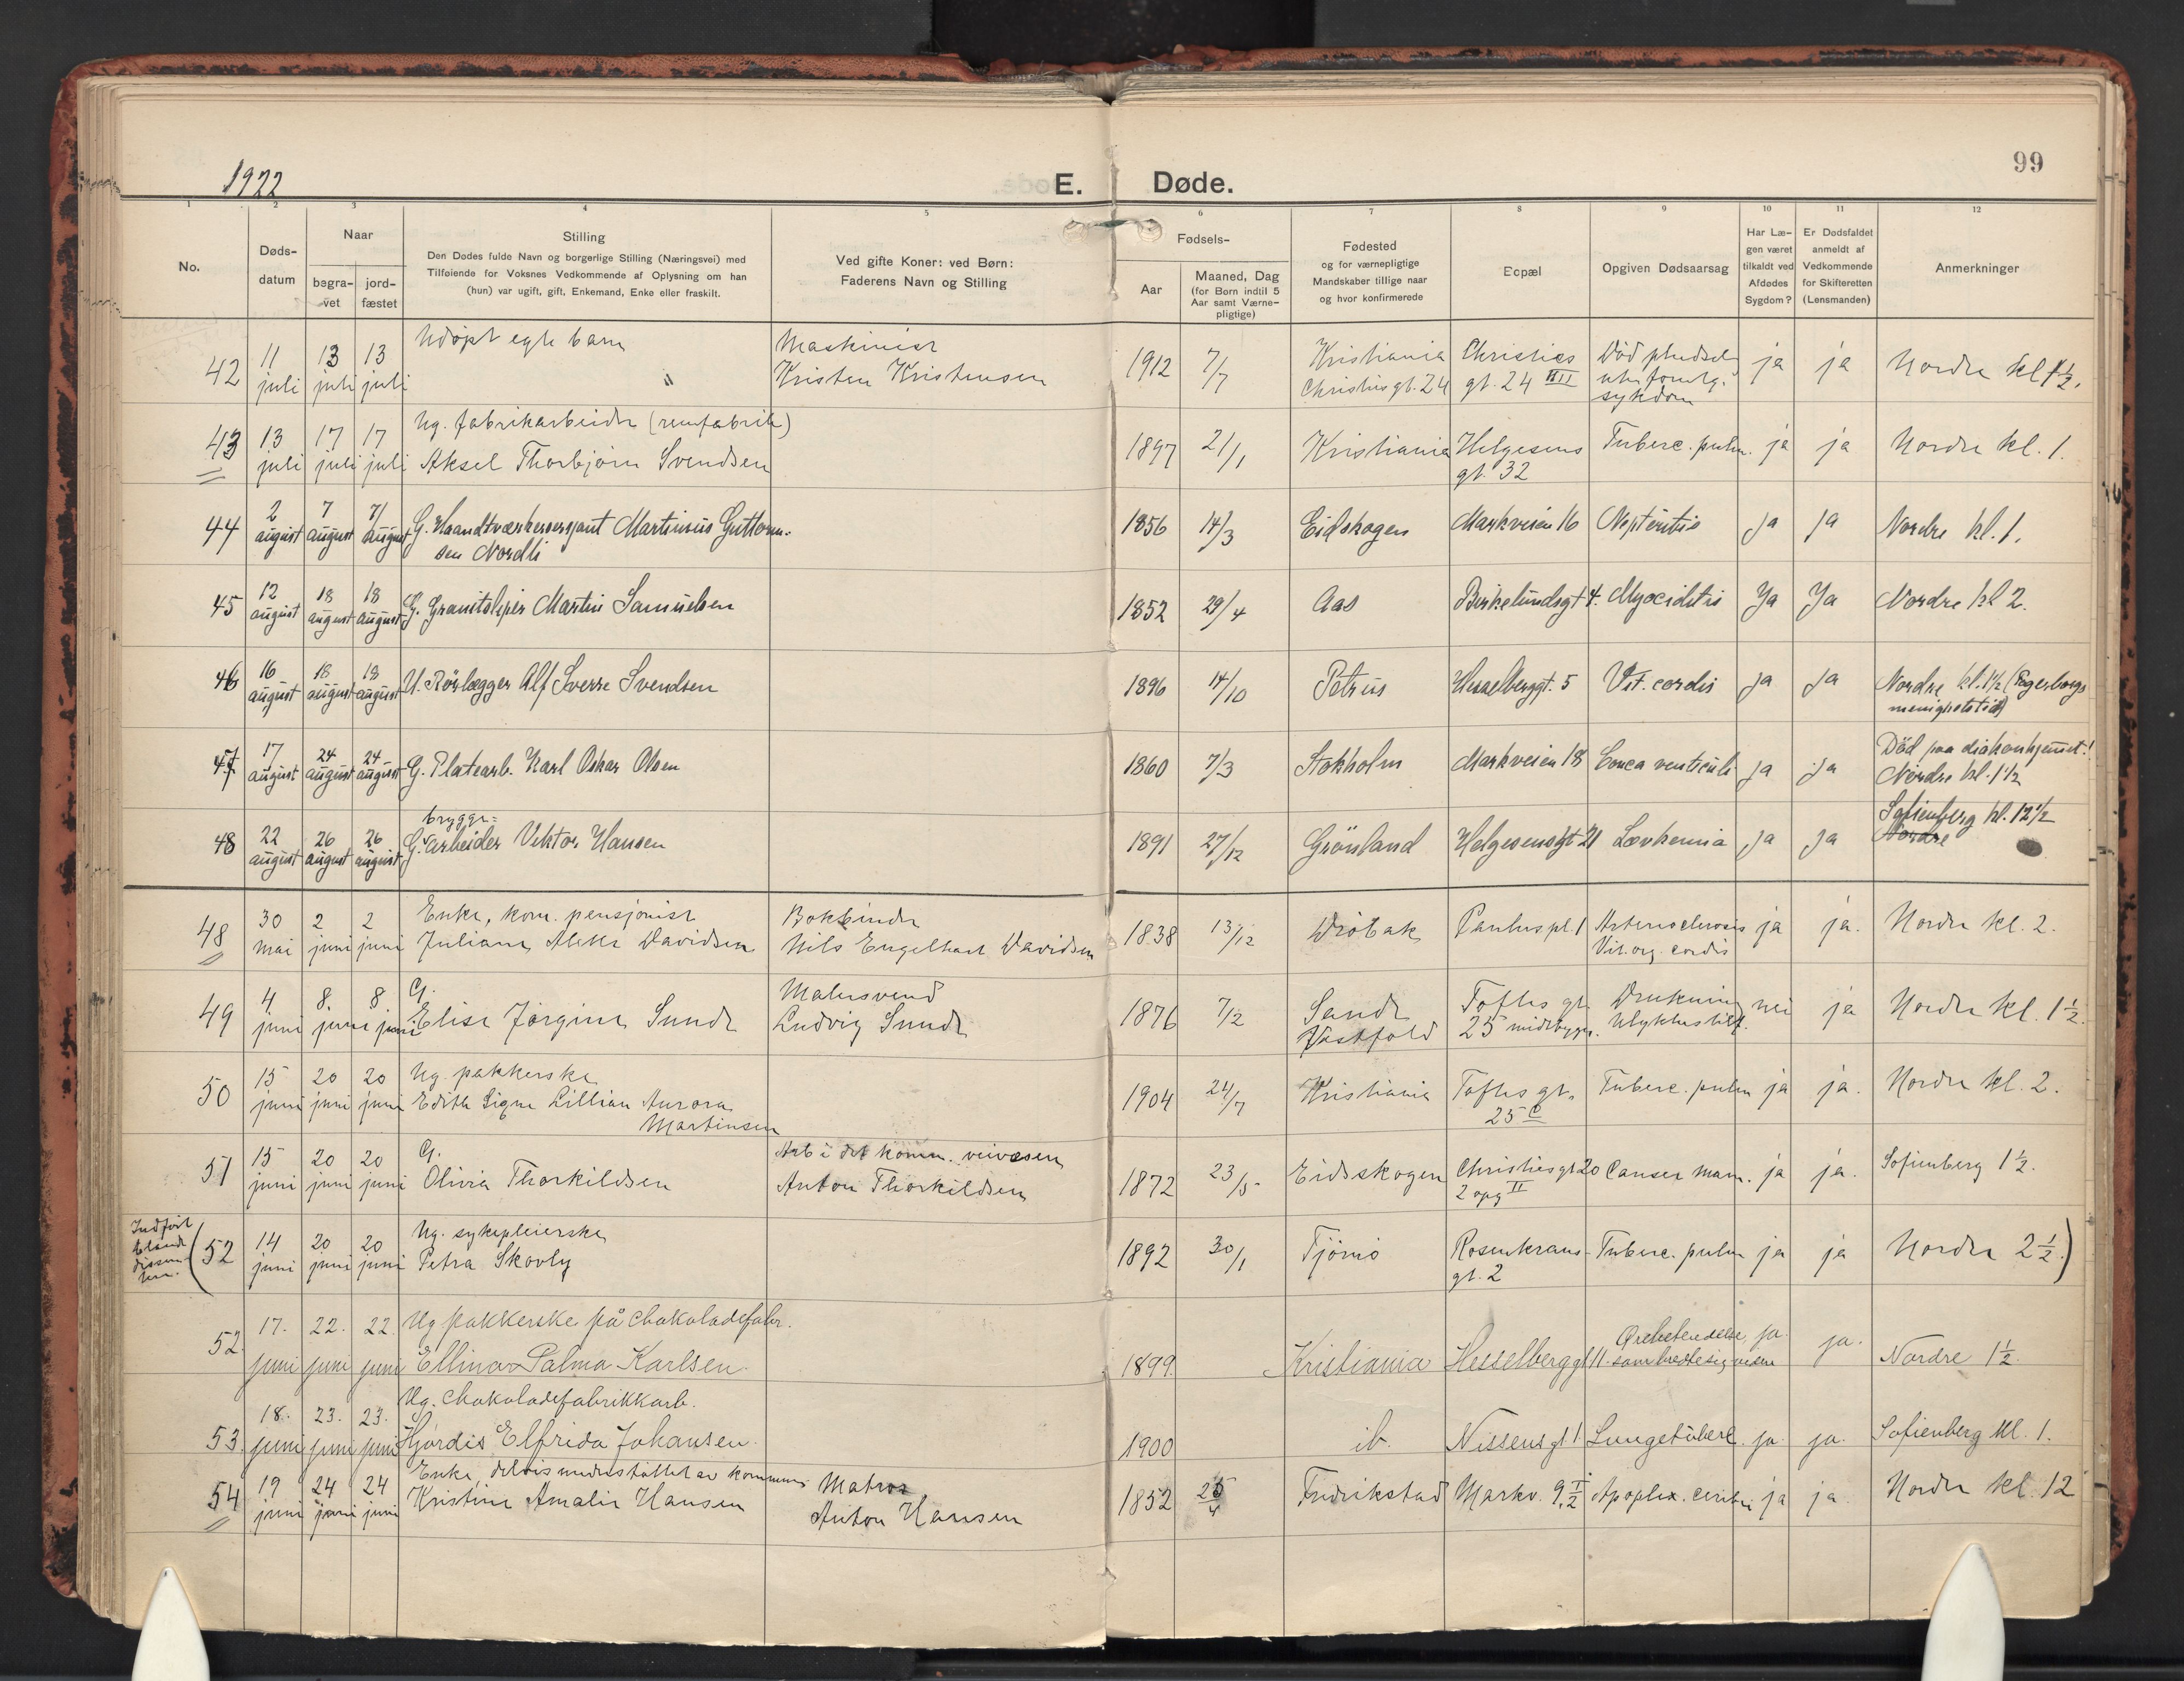 1922
E. Døde.
99
1 2 3 4 5 6 7 8 9 10 11 12
No.
Døds-
datum
Naar
begra-
vet
jord-
fæstet
Stilling
Den Dødes fulde Navn og borgerlige Stilling (Næringsvei) med
Tilføiende for Voksnes Vedkommende af Oplysning om han
(hun) var ugift, gift, Enkemand, Enke eller fraskilt.
Ved gifte Koner: ved Børn:
Faderens Navn og Stilling
Fødsels-
Aar
Maaned, Dag
(for Børn indtil 5
Aar samt Værne-
pligtige)
Fødested
og for værnepligtige
Mandskaber tillige naar
og hvor konfirmerede
Bopæl
Opgiven Dødsaarsag
Har Læ-
gen været
tilkaldt ved
Afdødes
Sygdom?
Er Dødsfaldet
anmeldt af
Vedkommende
for Skifteretten
(Lensmanden)
Anmerkninger
Udøpt egte barn Maskinist Kristiania Christies Død pludselig
42 11 13 13 " Kristen Kristensen 1912 7/7 Christiesgt. 24 gt. 24 III uten forutg. ja ja Nordre kl 1½.
juli juli juli sykdom
Ug. fabrikarbeider (remfabrik)
43 13 17 17 Aksel Thorbjørn Svendsen 1897 21/1 Kristiania Helgesens Tuberc. pulm. ja ja Nordre kl. 1.
juli juli juli gt. 32
44 2 7 7 G. Haandtværkersersjant Martinius Guttorm- 1856 14/3 Eidskogen Markveien 16 ja ja Nordre kl. 1.
august august august sen Nordli
45 12 18 18 G. Granitsliper Martin Samuelsen 1852 29/4 Aas Birkelundsgt 4. Ja Ja Nordre kl 2.
august august august
46 16 18 18 U. Rørlægger Alf Sverre Svendsen 1896 14/10 Petrus Hesselberggt. 5 Vit. cordis ja ja Nordre kl. 1½ (Fagerborgs
august august august menighetstid)
47 17 24 24 G. Platearb. Karl Oskar Olsen 1860 7/3 Stokholm Markveien 18 ventriculi ja ja Død paa diakonhjemmet!
august august august Nordre kl. 1½
brygge- Sofienberg kl. 12½
48 22 26 26 G. Arbeider Viktor Hansen 1891 27/12 Grönland Helgesensgt 21 Levkemia ja ja Nordre
august august august
Enke, kom. pensjonist Bokbinder
48 30 2 2 Juliane Davidsen Nils Engelhart Davidsen 1838 13/12 Drøbak Paulus pl. 1 Arteriosclerosis ja ja. Nordre kl. 2.
mai juni juni Vit. org. cordis
G. Malersvend
49 4. 8. 8. Elise Jørgine Sunde Ludvig Sunde 1876 7/2 Sande Toftes gt. Drukning nei ja Nordre kl. 1½.
juni juni juni Vestfold 25 midtbygn. Ulykkestilf.
Ug. pakkerske
50 15 20 20 Edith Signe Lillian Aurora 1904 24/7 Kristiania Toftes gt. Tuberc. pulm ja ja. Nordre kl. 2.
juni juni juni Martinsen 25 c
G. Arb i det komm. veivæsen
51 15 20 20 Olivia Thorkildsen Anton Thorkildsen 1872 23/5 Eidsskogen Christiesgt 20 Canser mam. ja ja. Sofienberg 1½.
juni juni juni 2 opg II
Indført
blandt
dissen-
tere.
Ug. sykepleierske
(52 14 20 20 Petra Skovly 1892 30/1 Tjømø Rosenkrans- Tuberc. pulm ja ja Nordre 2½.)
juni juni juni gt. 2
Ug. pakkerske på chokoladefabr.
52. 17. 22. 22. Ellinor Palma Karlsen. 1899. Kristiania Hesselberggt 11. Ørebetendelse ja. ja. Nordre 1½.
juni juni juni som bredte sig videre
Ug. Chokoladefabrikkarb.
53. 18. 23. 23. Hjørdis Elfrida Johansen. 1900 ib. Nissensgt 1 Lungetuberk. ja. ja. Sofienberg kl. 1.
juni juni juni
Enke, delvis understøttet av kommunen Matros
54 19 24 24 Kristine Amalie Hansen Anton Hansen 1852 25/4 Fredrikstad Markv. 9, I/2 Apoplex. cerebri ja ja Nordre kl. 12
juni juni juni